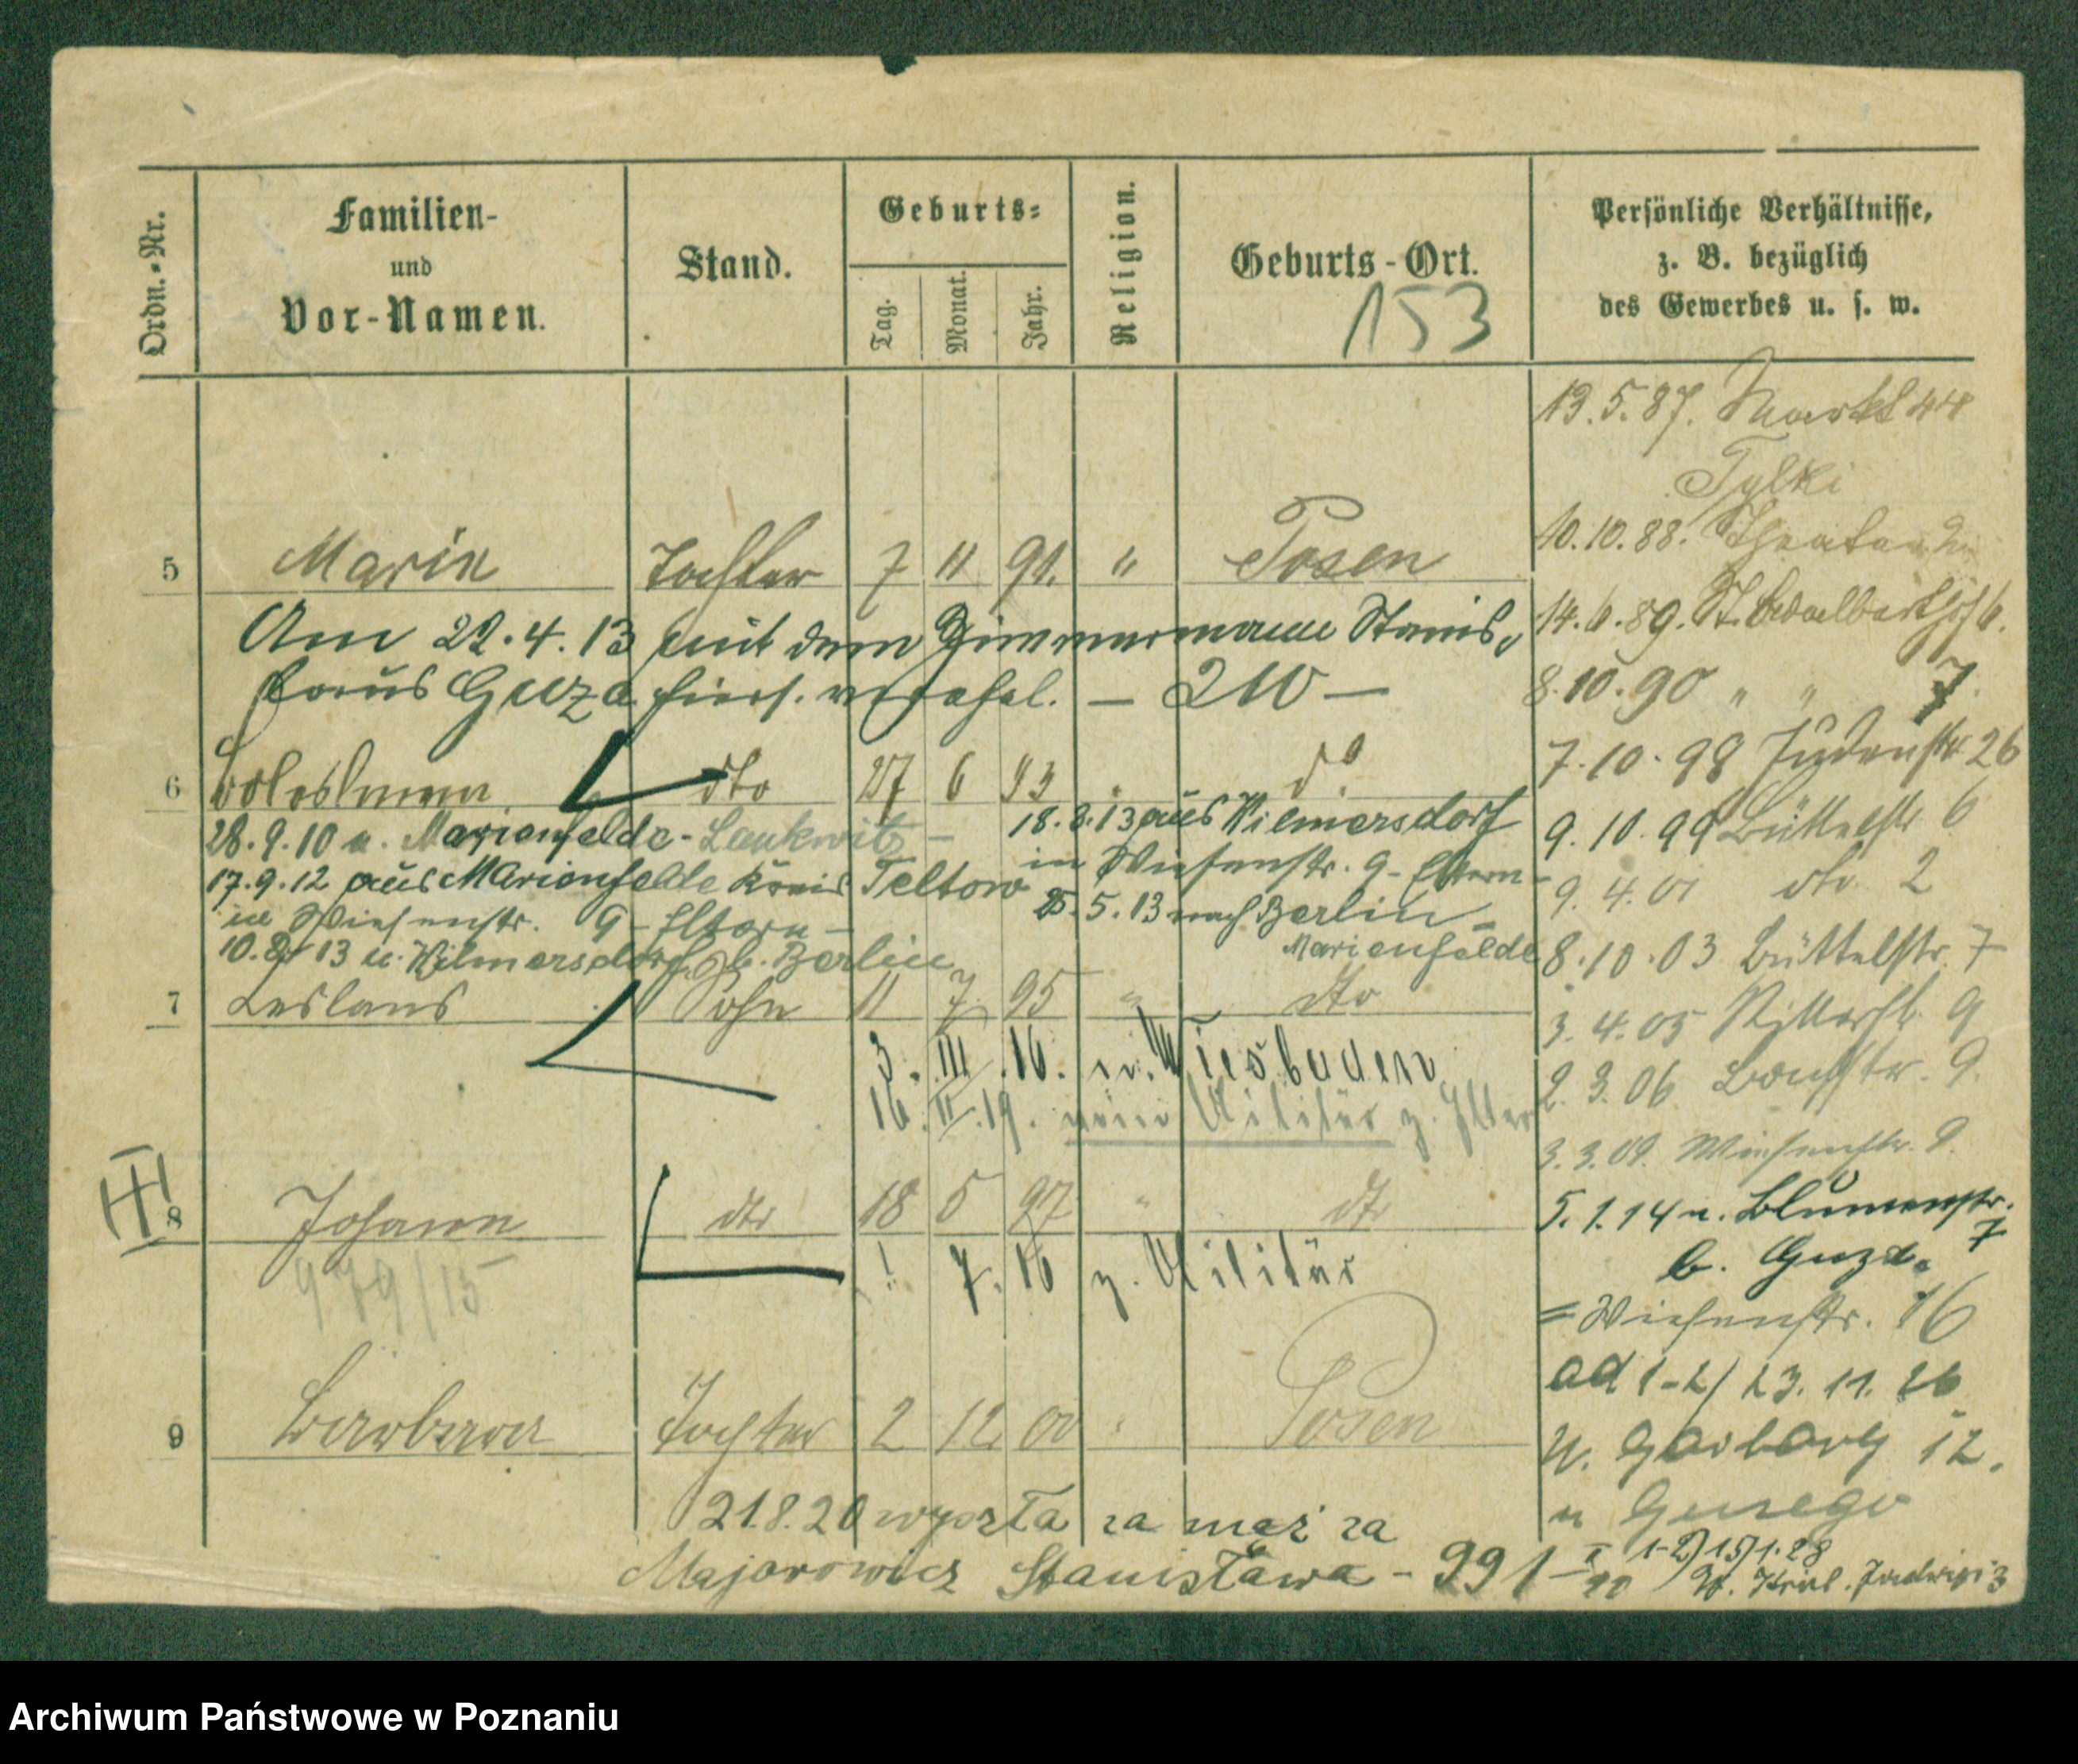 Ordn.-Nr.
Familien-
und
Vor-Namen.
Stand.
Geburts-
Tag.
Monat.
Jahr.
Religion.
Geburts-Ort.
153
Persönliche Verhältnisse,
z. B. bezüglich
des Gewerbes u. s. w.
13.5.87. Markt 44
Tylki
10.10.88.
14.6.89. St. Adalbertstr 6.
8.10.90 " " 7.
7.10.98 Judenstr 26
9.10.99 Büttelstr 6
9.4.01 dto 2
8.10.03 Büttelstr. 7
3.4.05 Ritterstr. 9
2.3.06 9.
3.3.09. Wiesenstr. 9.
5.1.14 n. Blumenstr. 7
b. Guza.
= Wiesenstr. 16
ad 1-2/ 23.11.26
W. Garbary 12.
u
1-2) 15/1.28
5 Maria Tochter 7 11 91. " Posen
Am 22.4.13 mit dem Zimmermann Stanis-
laus Guza hiers. verehel. —
6 dto 27 6 93 do
28.9.10 n. Marienfelde-Lankwitz –
17.9.12 aus Marienfelde Kreis Teltow
in Wiesenstr. 9 – Eltern –
10.2.13 n. Wilmersdorf b. Berlin
18.3.13 aus Wilmersdorf
in Wiesenstr. 9 – Eltern –
25.5.13 nach Berlin –
Marienfelde
7 Leslaus Sohn 11 7 95 " dto
3. III. 16. n. Wiesbaden
16. II. 19. vom Militär z. Eltern
8 Johann dto 18 5 97 " dto
979/15
7. 16 z. Militär
9 Barbara Tochter 2 12 00 " Posen
21.8.20 wyszła za mąż za
Majorowicz Stanisława - 991